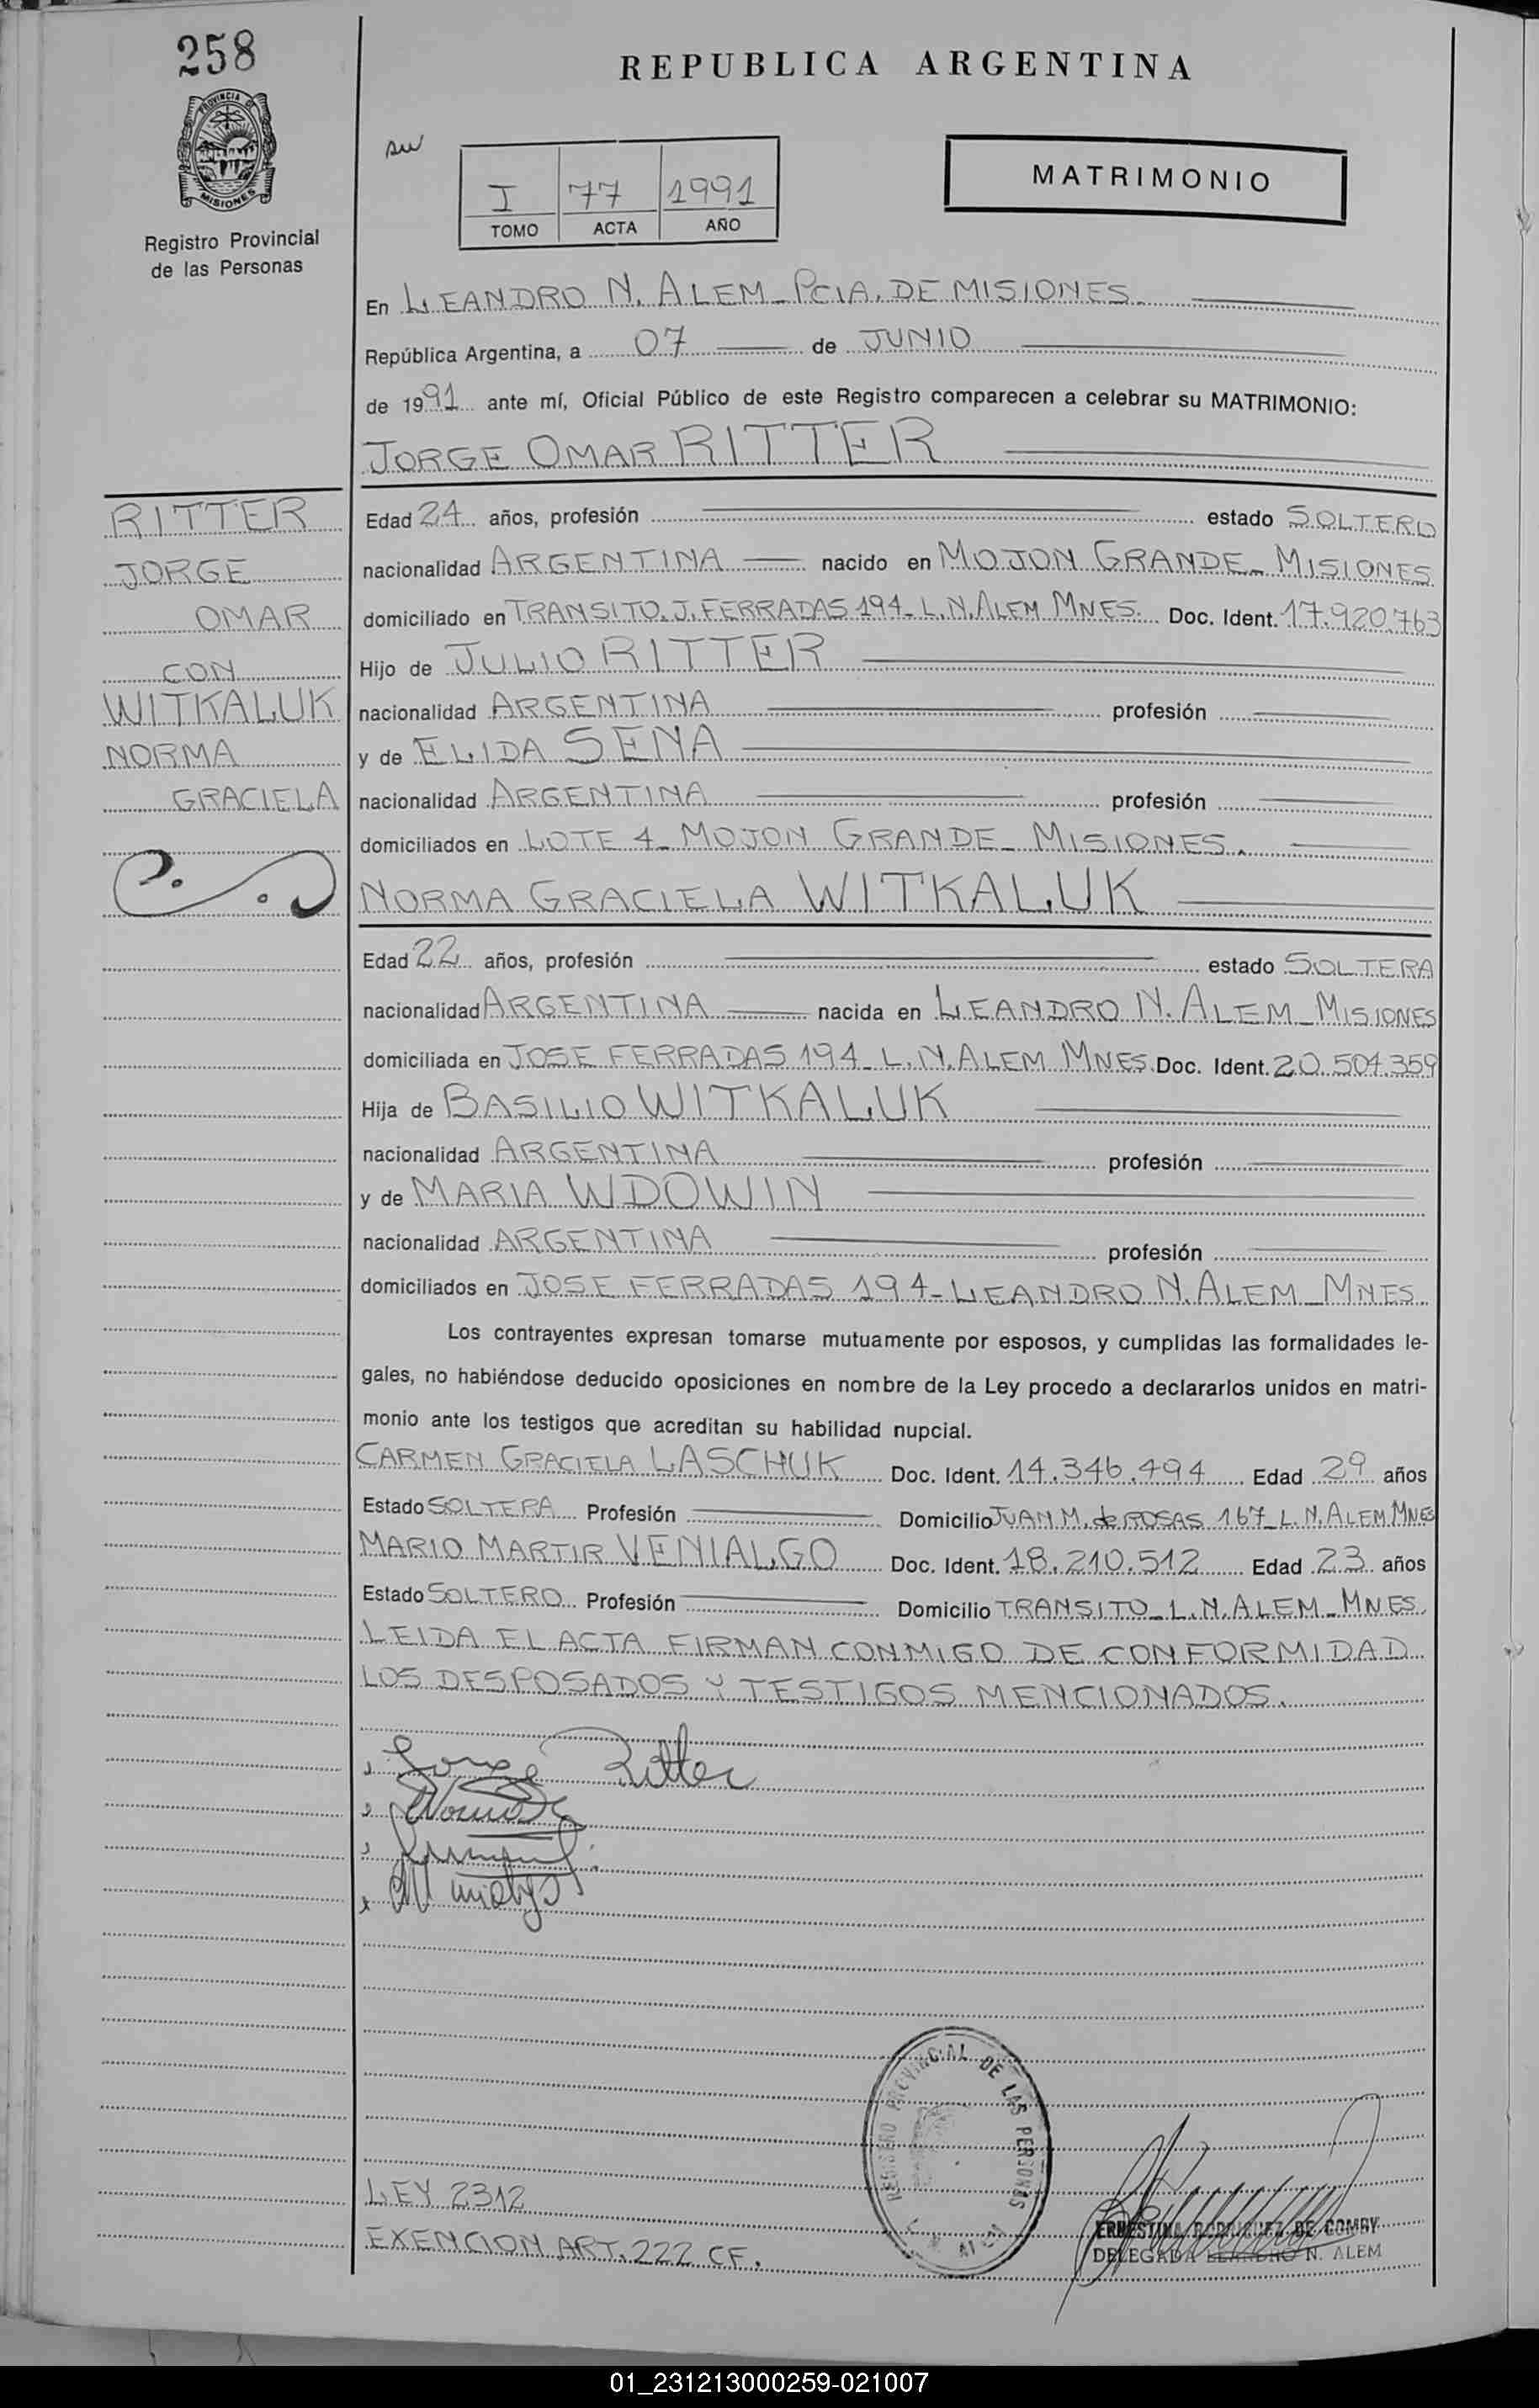 258
REPUBLICA ARGENTINA
PROVINCIA DE
MISIONES
Registro Provincial
de las Personas
I 77 1991
TOMO ACTA AÑO
MATRIMONIO
En LEANDRO N. ALEM - PCIA. DE MISIONES.
República Argentina, a 07 de JUNIO
de 1991 ante mí, Oficial Público de este Registro comparecen a celebrar su MATRIMONIO:
JORGE OMAR RITTER
RITTER
JORGE
OMAR
CON
WITKALUK
NORMA
GRACIELA
Edad 24 años, profesión estado SOLTERO
nacionalidad ARGENTINA nacido en MOJON GRANDE - MISIONES
domiciliado en TRANSITO. J. FERRADAS 194 - L.N. ALEM MNES. Doc. Ident. 17.920.763
Hijo de JULIO RITTER
nacionalidad ARGENTINA profesión
y de ELIDA SENA
nacionalidad ARGENTINA profesión
domiciliados en LOTE 4 - MOJON GRANDE - MISIONES.
NORMA GRACIELA WITKALUK
Edad 22 años, profesión estado SOLTERA
nacionalidad ARGENTINA nacida en LEANDRO N. ALEM - MISIONES
domiciliada en JOSE FERRADAS 194 - L.N. ALEM MNES. Doc. Ident. 20.504.359
Hija de BASILIO WITKALUK
nacionalidad ARGENTINA profesión
y de MARIA WDOWIN
nacionalidad ARGENTINA profesión
domiciliados en JOSE FERRADAS 194 - LEANDRO N. ALEM - MNES.
Los contrayentes expresan tomarse mutuamente por esposos, y cumplidas las formalidades le-
gales, no habiéndose deducido oposiciones en nombre de la Ley procedo a declararlos unidos en matri-
monio ante los testigos que acreditan su habilidad nupcial.
CARMEN GRACIELA LASCHUK Doc. Ident. 14.346.494 Edad 29 años
Estado SOLTERA Profesión Domicilio JUAN M. de ROSAS 167 - L.N. ALEM MNES
MARIO MARTIR VENIALGO Doc. Ident. 18.210.512 Edad 23 años
Estado SOLTERO Profesión Domicilio TRANSITO - L.N. ALEM - MNES.
LEIDA EL ACTA FIRMAN CONMIGO DE CONFORMIDAD
LOS DESPOSADOS Y TESTIGOS MENCIONADOS.
Jorge Ritter
REGISTRO PROVINCIAL DE LAS PERSONAS
LEY 2312
EXENCION ART. 222 CF.
ERNESTINA RODRIGUEZ DE COMBY
DELEGADA LEANDRO N. ALEM
01_231213000259-021007